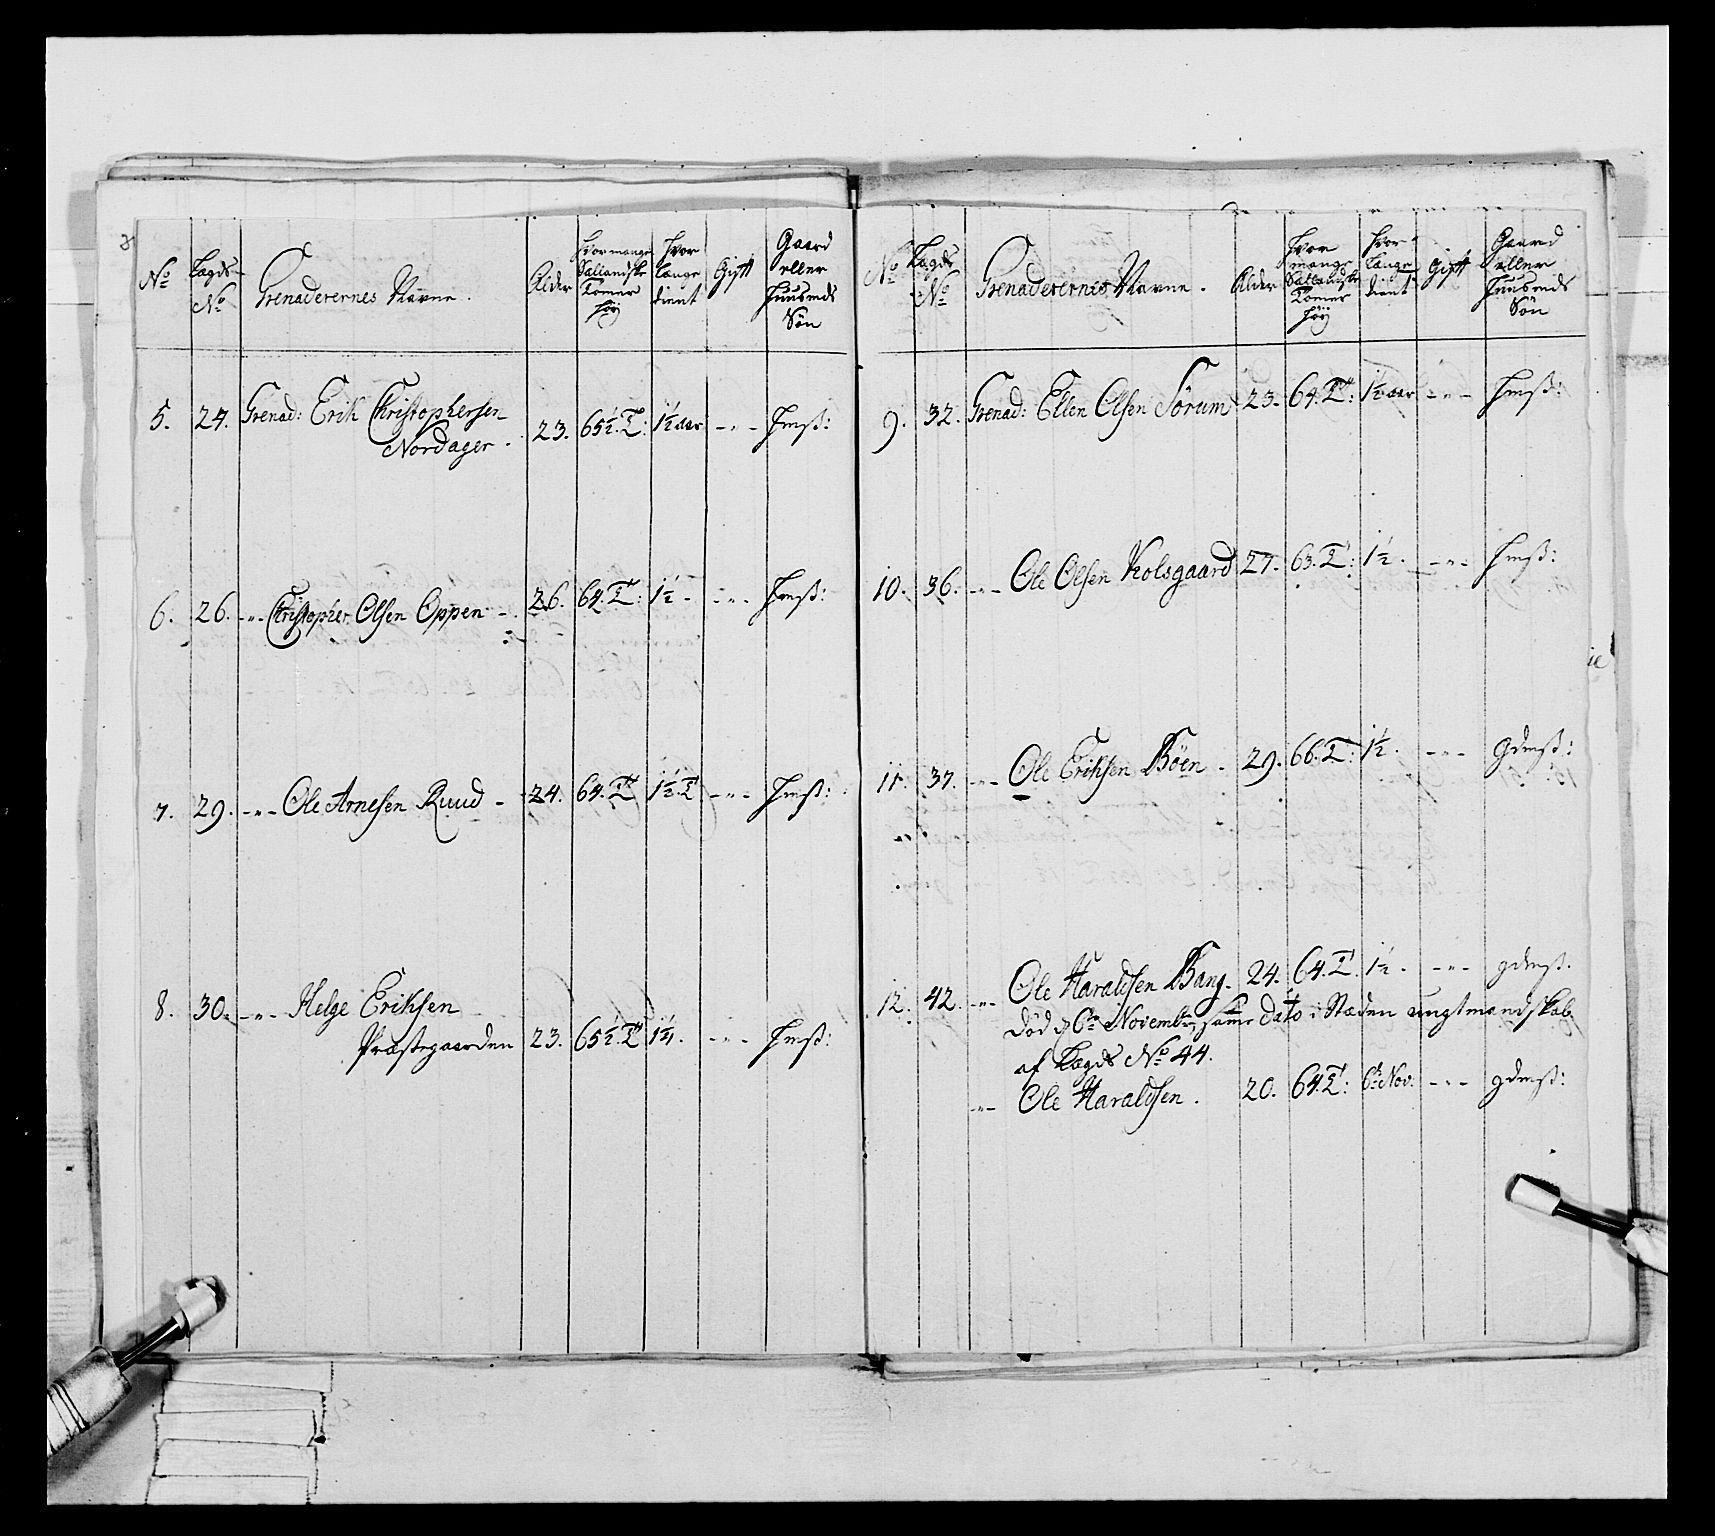 No Lægds No Grenaderernes Navne. Alder Hvor mange Sællandske Tomer høy Hvor længe tient Gift Gaard eller Huusmds Søn
5. 24. Grenad: Erik Christophersen
Nordager. 23. 65½ T: 1½ aar -"- Hmß:
6. 26. -"- Christopher Olsen Oppen - 26. 64. T: 1½ - -"- Hmß:
7. 29. -"- Ole Arnesen Ruud - 24. 64. T 1½ T -"- Hmß:
8. 30. -"- Helge Eriksen
Præstegaarden 23. 65½ T 1¼. -"- Hmß:
No Lægds No Grenaderernes Navne. Alder Hvor mange Sællandske Tomer høy Hvor længe tient Gift Gaard eller Huusmds Søn
9. 32. Grenad: Ellen Olsen Sörum 23. 64. T: 1½ aar -"- Hmß:
10. 36. -"- Ole Olsen Kolsgaard 27. 63. T: 1½. -"- Hmß:
11. 37. -"- Ole Eriksen Böen - 29. 66. T: 1½. -"- Gdmß:
12. 42. -"- Ole Haraldsen Bang. 24. 64. T. 1½. -"- gdmß.
Död d 6te Novembr, samme dato i Stæden ungtmandskab
af Lægds No 44.
-"- Ole Haraldsen. 20. 64. T: 6te Nov: -"- gdmß: